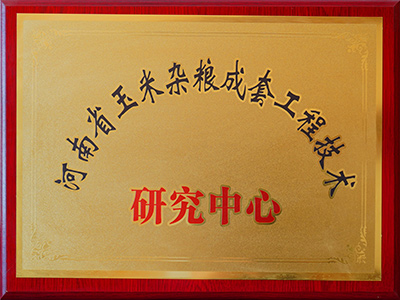 河南省玉米杂粮成套工程技术
研究中心